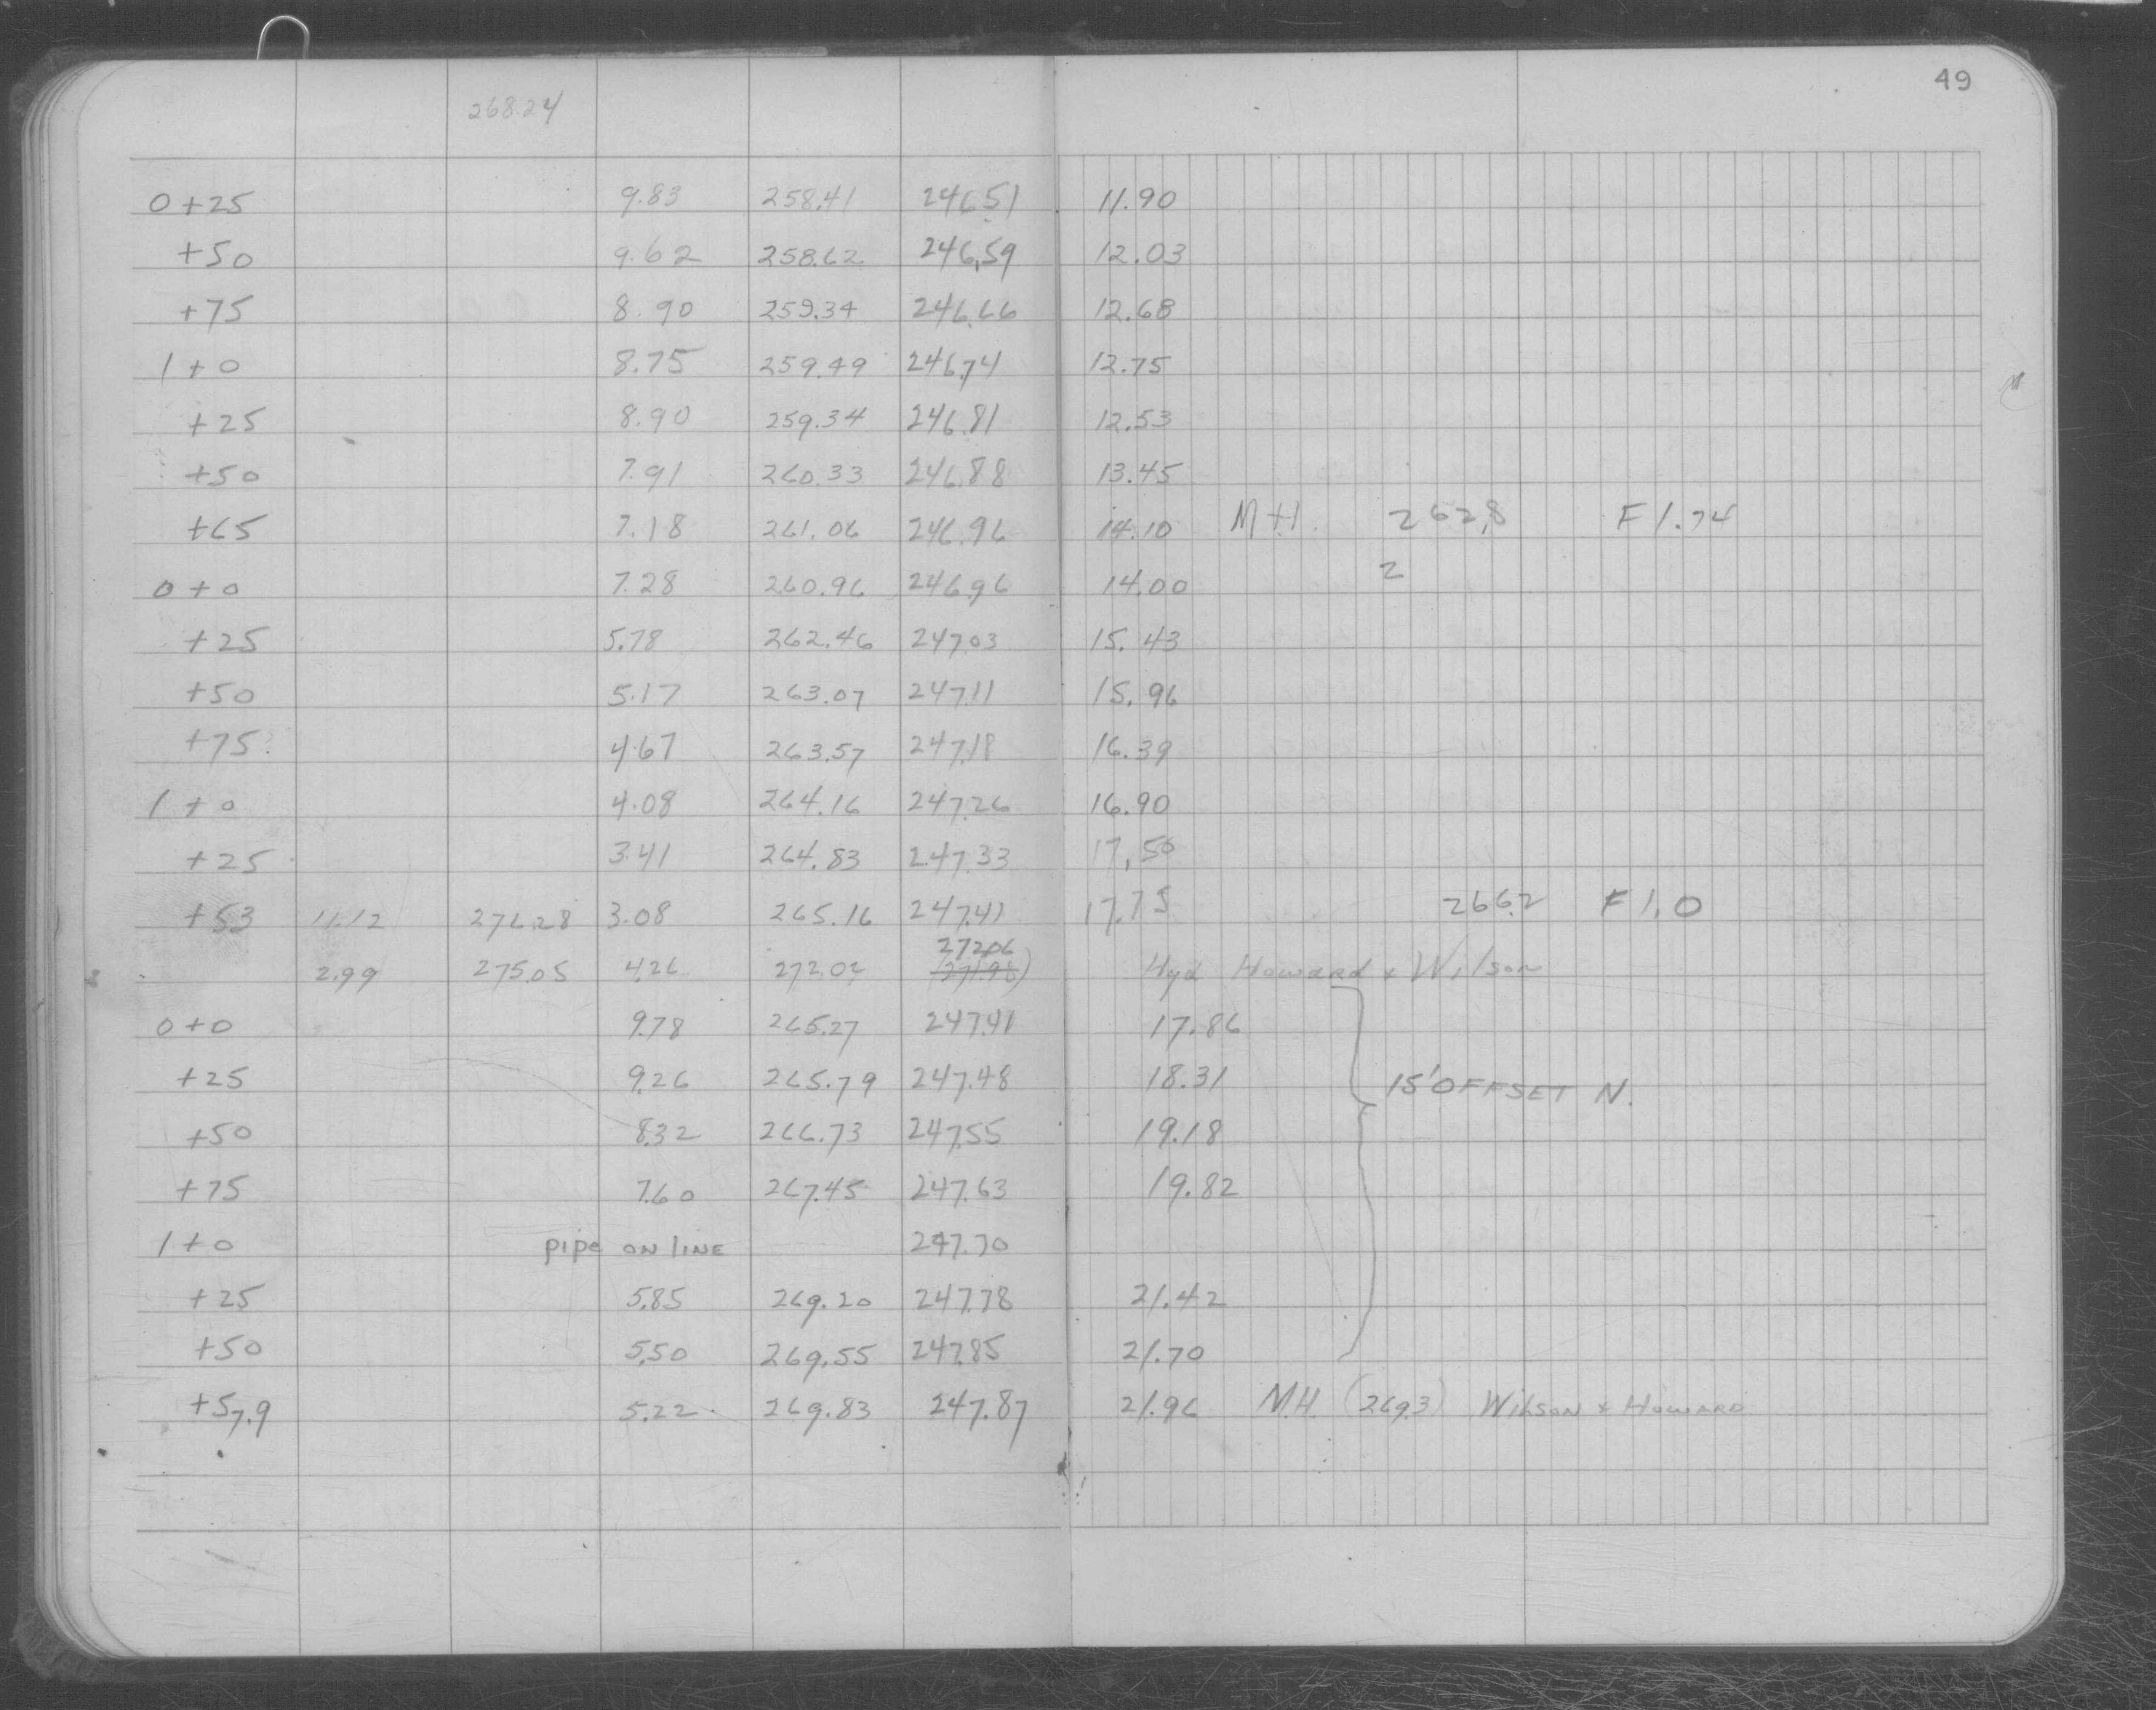 49
268.24
0+25 9.83 258.41 246.51 11.90
+50 9.62 258.62 246.59 12.03
+75 8.90 259.34 246.66 12.68
1+0 8.75 259.49 246.74 12.75
+25 8.90 259.34 246.81 12.53
+50 7.91 260.33 246.88 13.45
+65 7.18 261.06 246.96 14.10 M+H. 262.8 F 1.74
2
0+0 7.28 260.96 246.96 14.00
+25 5.78 262.46 247.03 15.43
+50 5.17 263.07 247.11 15.96
+75 4.67 263.57 247.18 16.39
1+0 4.08 264.16 247.26 16.90
+25 3.41 264.83 247.33 17.50
+53 11.12 276.28 3.08 265.16 247.41 17.75 266.2 F 1.0
272.06
2.99 275.05 4.26 272.02 (271.98) Hyd Howard & Wilson
0+0 9.78 265.27 247.41 17.86
+25 9.26 265.79 247.48 18.31 15' OFFSET N.
+50 8.32 266.73 247.55 19.18
+75 7.60 267.45 247.63 19.82
1+0 pipe ON LINE 247.70
+25 5.85 269.20 247.78 21.42
+50 5.50 269.55 247.85 21.70
+57.9 5.22 269.83 247.87 21.96 M.H. (269.3) Wilson & Howard